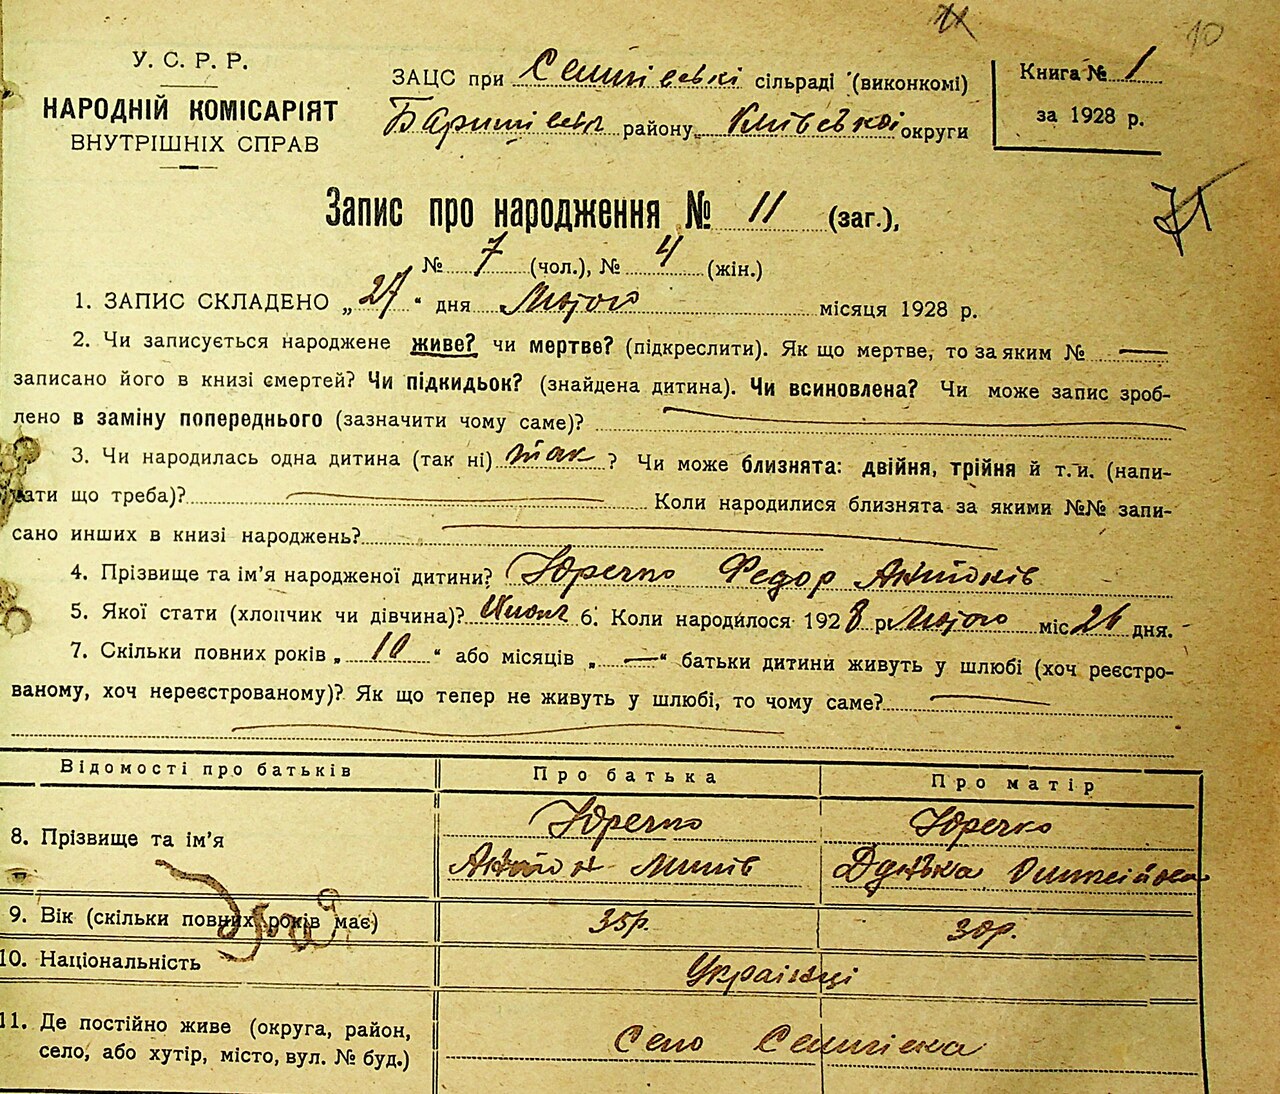 10
У. С. Р. Р.
НАРОДНІЙ КОМІСАРІЯТ
ВНУТРІШНІХ СПРАВ
ЗАЦС при Селищевські сільраді (виконкомі)
району Київської округи
Книга № 1
за 1928 р.
71
Запис про народження № 11 (заг.),
№ 7 (чол.), № 4 (жін.)
1. ЗАПИС СКЛАДЕНО „27“ дня Лютого місяця 1928 р.
2. Чи записується народжене живе? чи мертве? (підкреслити). Як що мертве, то за яким № —
записано його в книзі смертей? Чи підкидьок? (знайдена дитина). Чи всиновлена? Чи може запис зроб-
лено в заміну попереднього (зазначити чому саме)?
3. Чи народилась одна дитина (так ні) так ? Чи може близнята: двійня, трійня й т. и. (напи-
сати що треба)? Коли народилися близнята за якими №№ запи-
сано инших в книзі народжень?
4. Прізвище та ім’я народженої дитини? Юречко Федор
5. Якої стати (хлопчик чи дівчина)? 6. Коли народилося 1928 р Лютого міс 26 дня.
7. Скільки повних років „ 10 “ або місяців „ — “ батьки дитини живуть у шлюбі (хоч реєстро-
ваному, хоч нереєстрованому)? Як що тепер не живуть у шлюбі, то чому саме?
Відомості про батьків Про батька Про матір
8. Прізвище та ім’я Юречко Юречко
9. Вік (скільки повних років має) 35р. 30р.
10. Національність Українці
11. Де постійно живе (округа, район,
село, або хутір, місто, вул. № буд.) Село